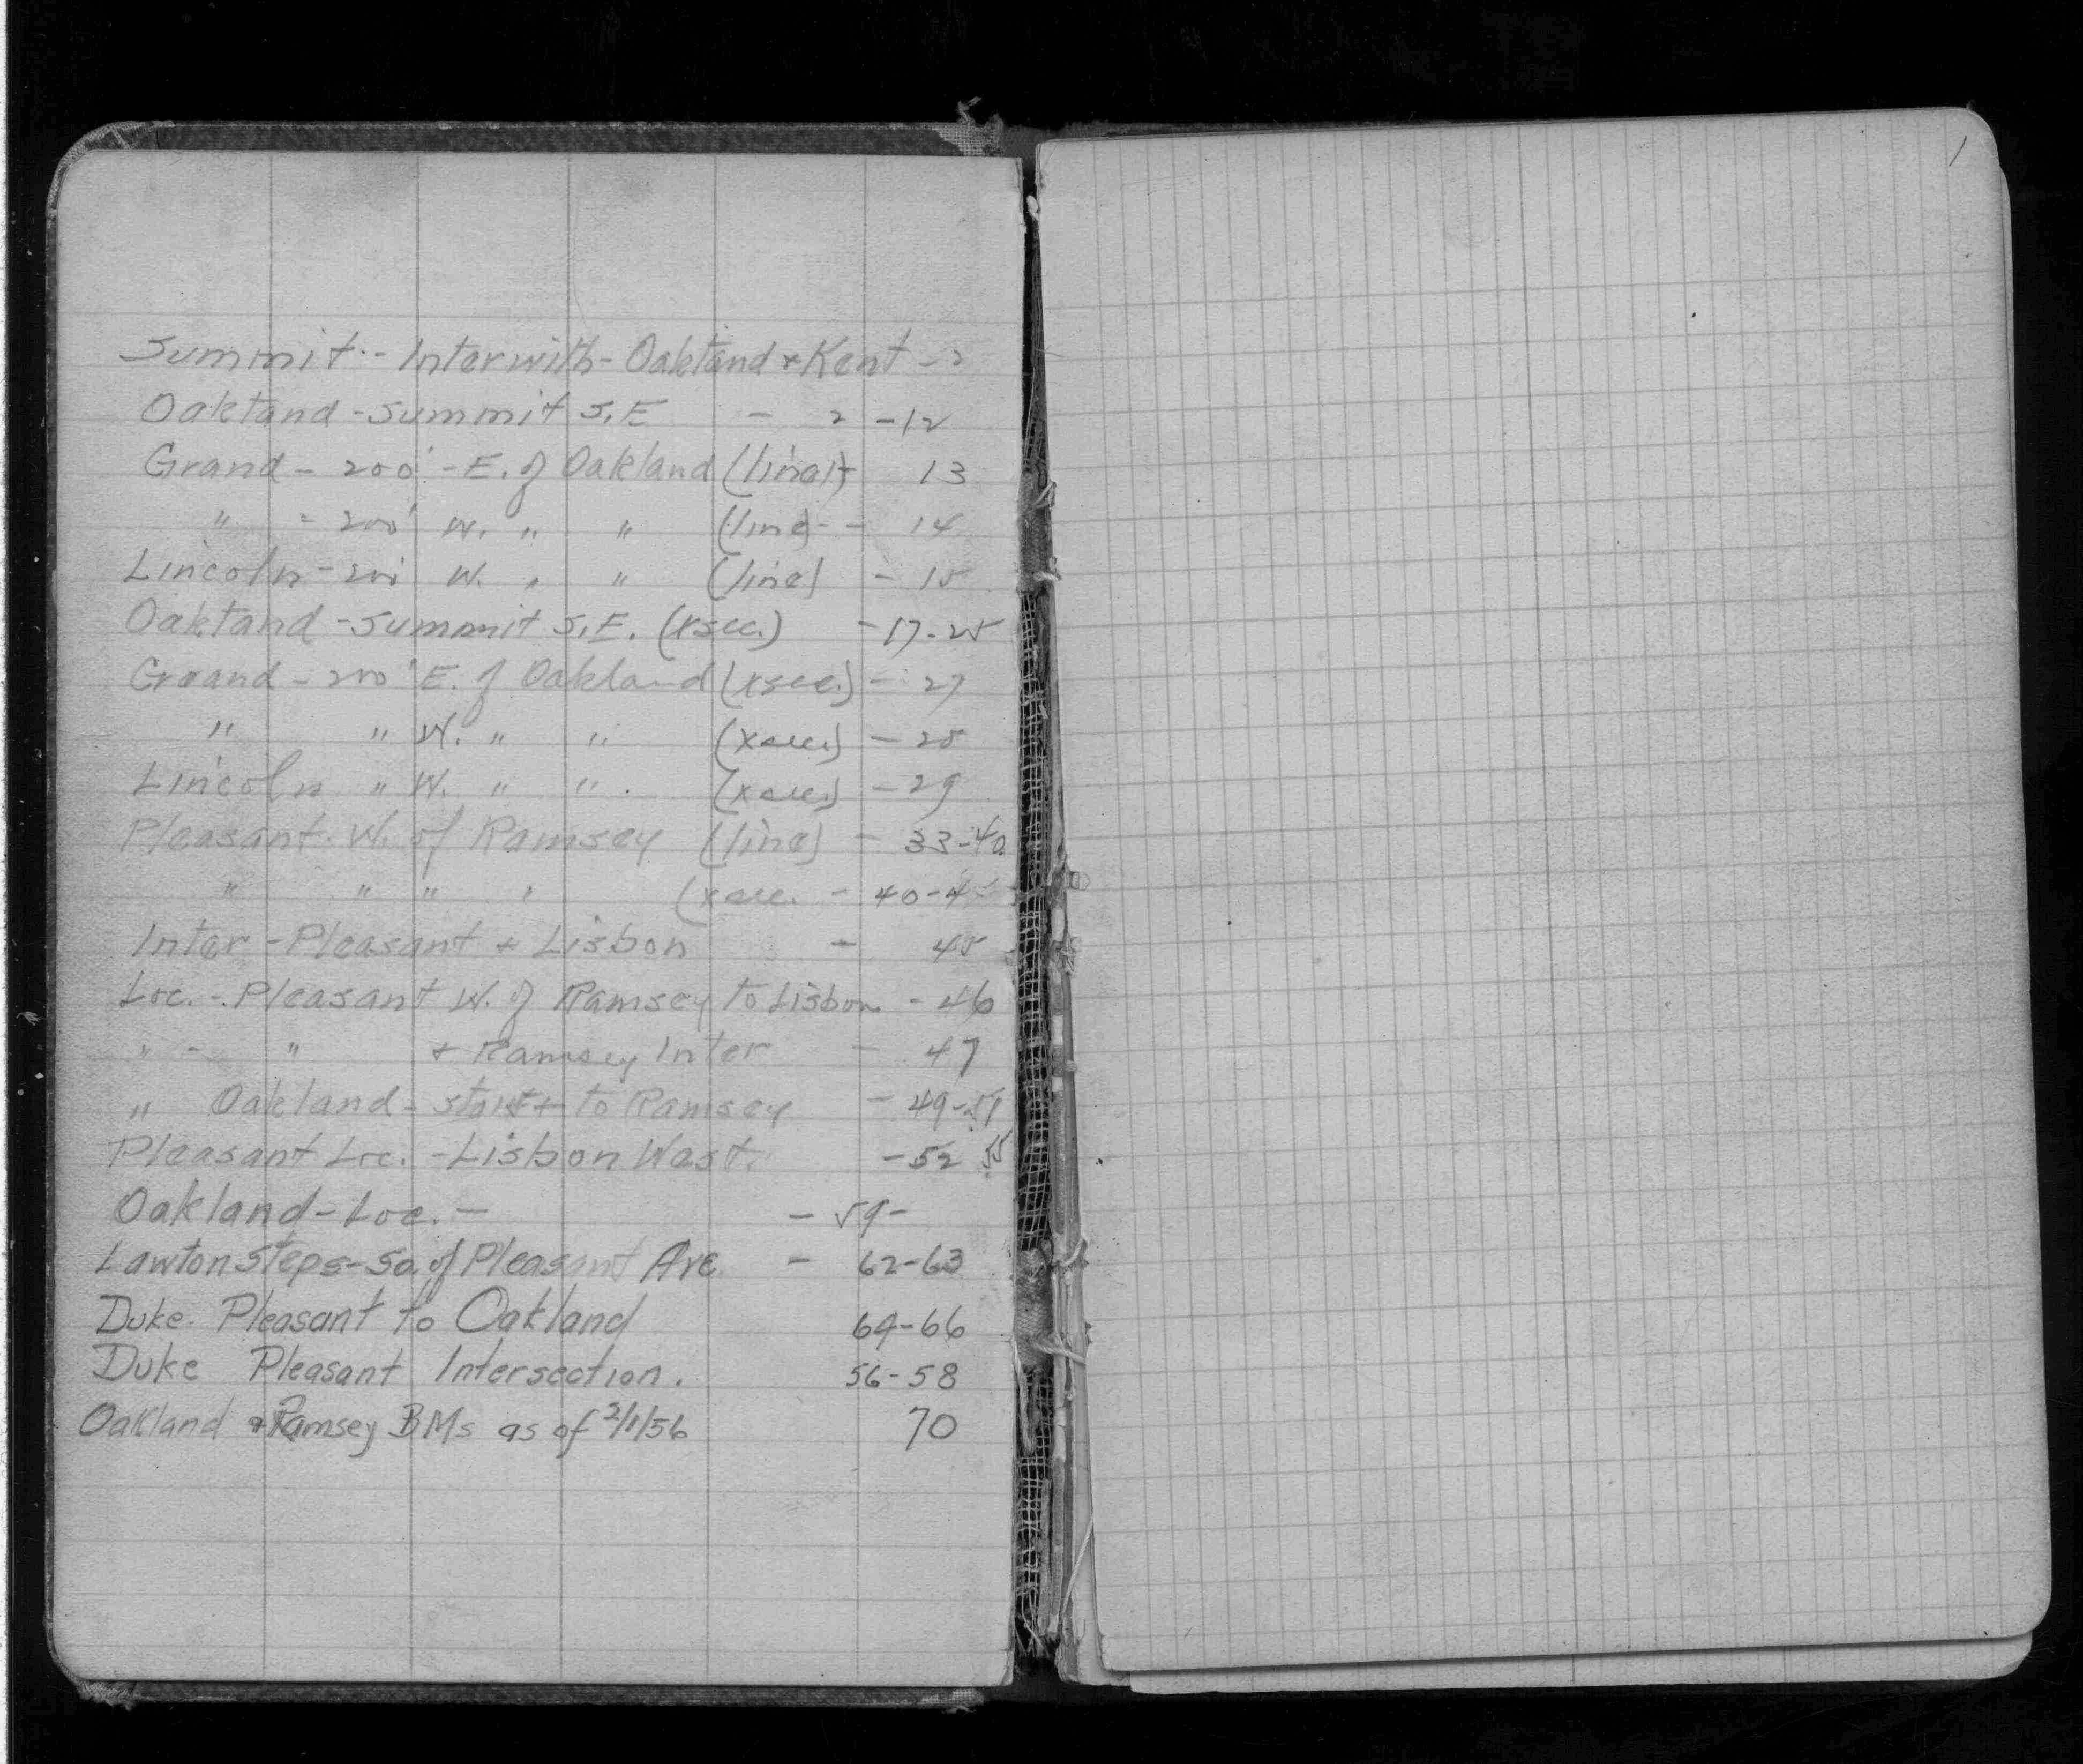 Summit - Inter with - Oakland + Kent - 2
Oakland - Summit S.E - 2 - 12
Grand - 200' - E. of Oakland (line) - 13
" - 200' W. " " (line) - - 14
Lincoln - 200' W. " " (line) - 15
Oakland - Summit S.E. (xsec.) - 17-25
Grand - 200' E. of Oakland (xsec.) - 27
" " W. " " (xsec.) - 28
Lincoln " W. " " (xsec.) - 29
Pleasant. W. of Ramsey (line) - 33-40
" " " " (xsec. - 40-45
Inter - Pleasant + Lisbon - 45
Loc. - Pleasant W. of Ramsey to Lisbon - 46
" - " + Ramsey Inter - 47
" Oakland - start to Ramsey - 49-51
Pleasant Loc. - Lisbon West. - 52 55
Oakland - Loc. - - 59 -
Lawton Steps - So. of Pleasant Ave. - 62-63
Duke Pleasant to Oakland 64-66
Duke Pleasant Intersection. 56-58
Oakland & Ramsey BMs as of 2/1/56 70
1